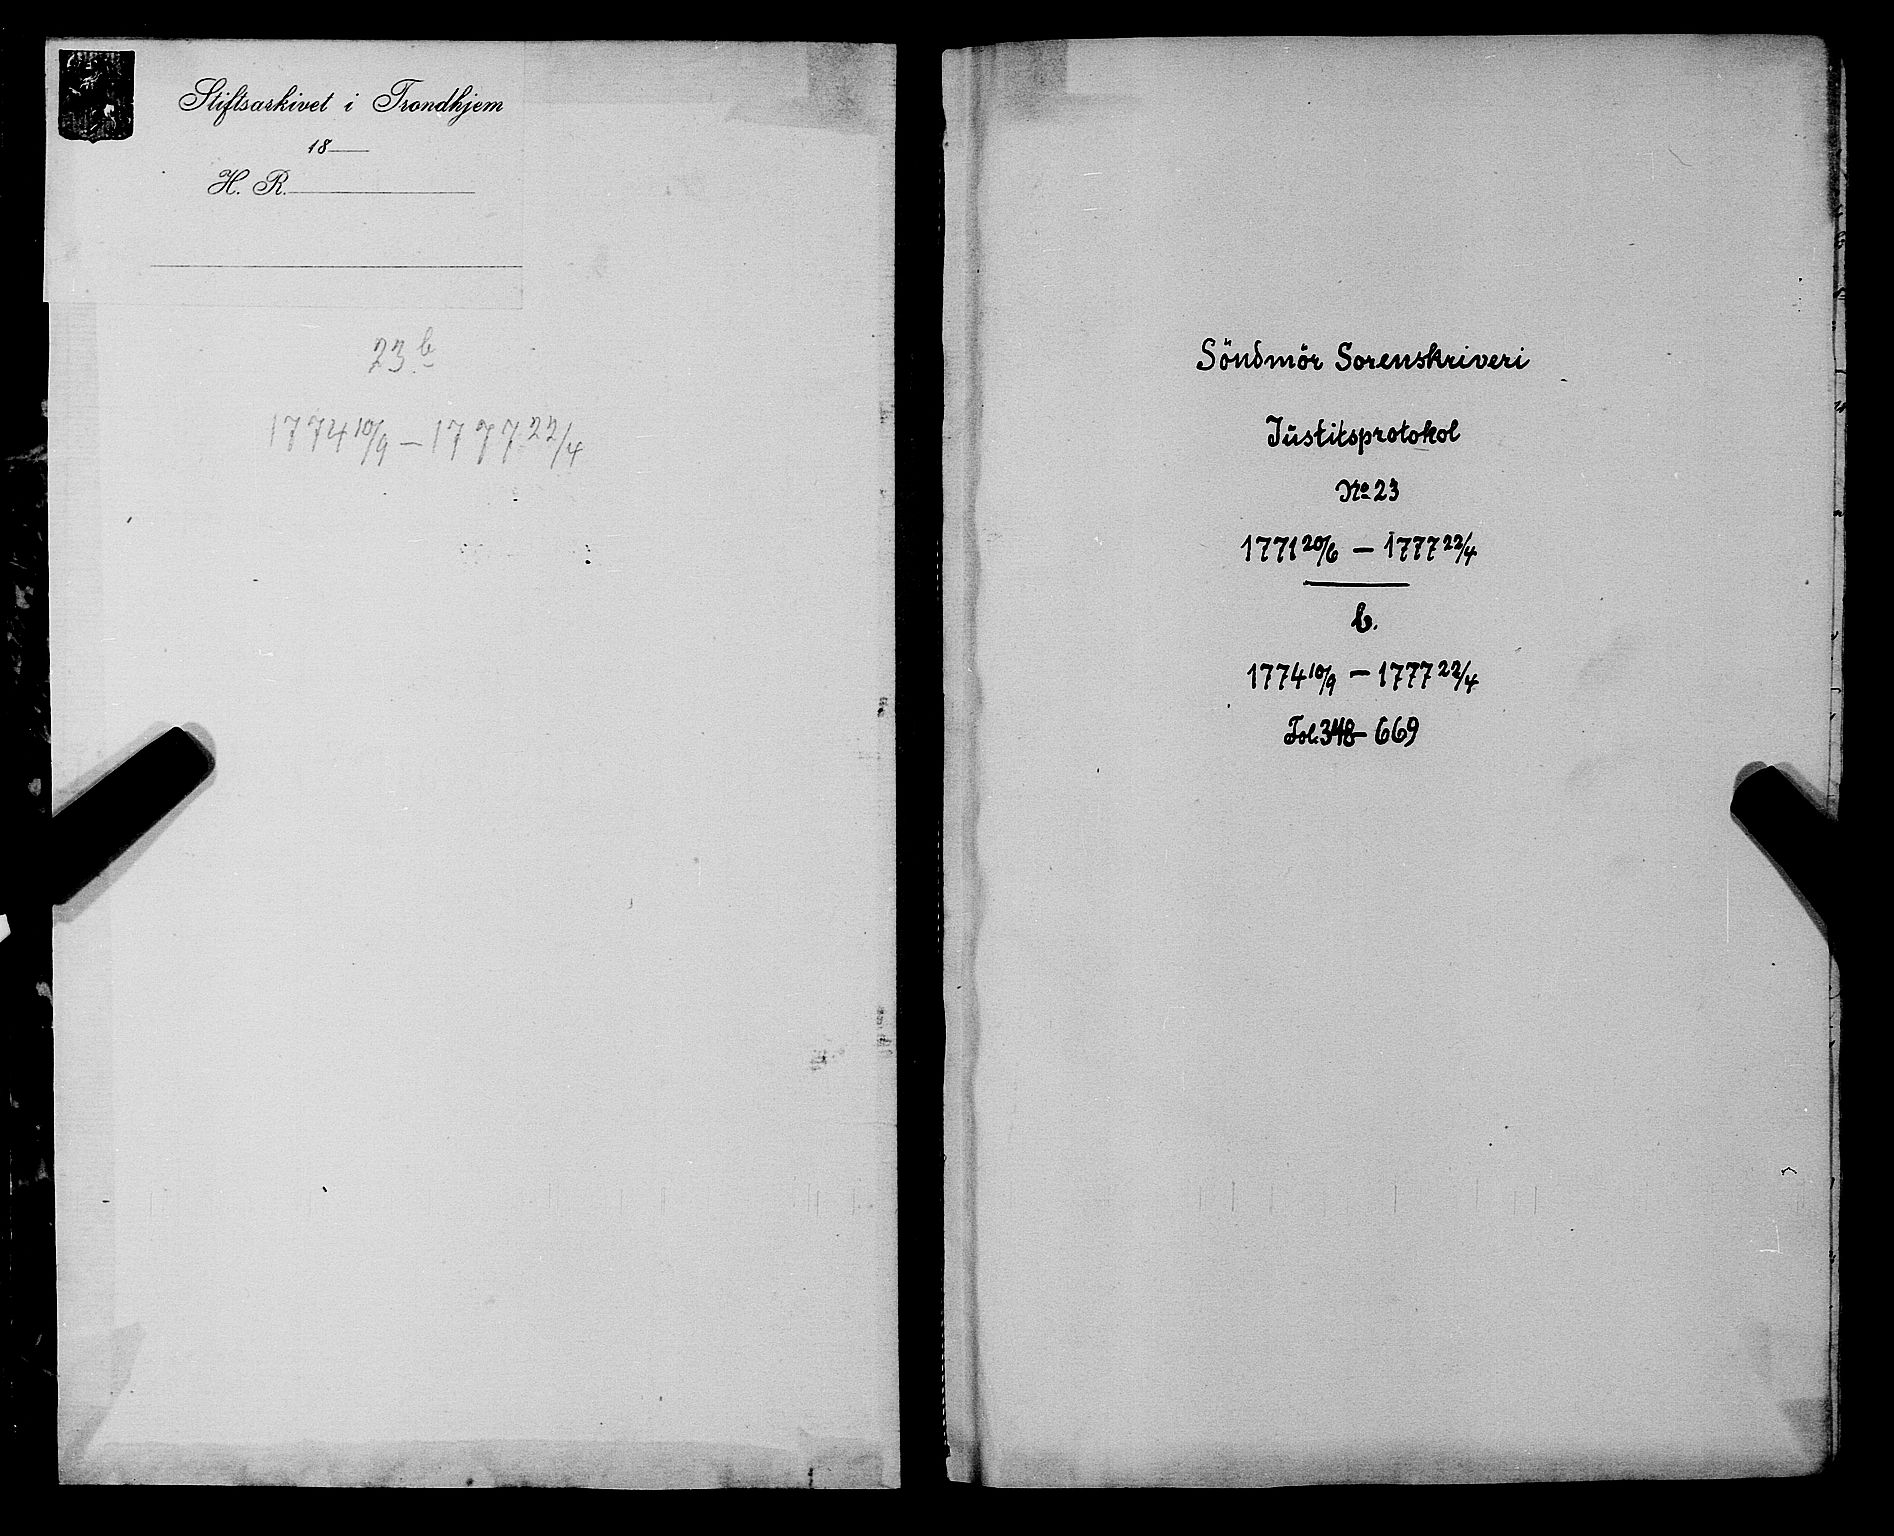 Stiftsarkivet i Trondhjem
18
H. R.
23 b
1774 10/9 — 1777 22/4
Söndmör Sorenskriveri
Justitsprotokol
No 23
1771 20/6 — 1777 22/4
b.
1774 10/9 — 1777 22/4
Fol. 348 - 669